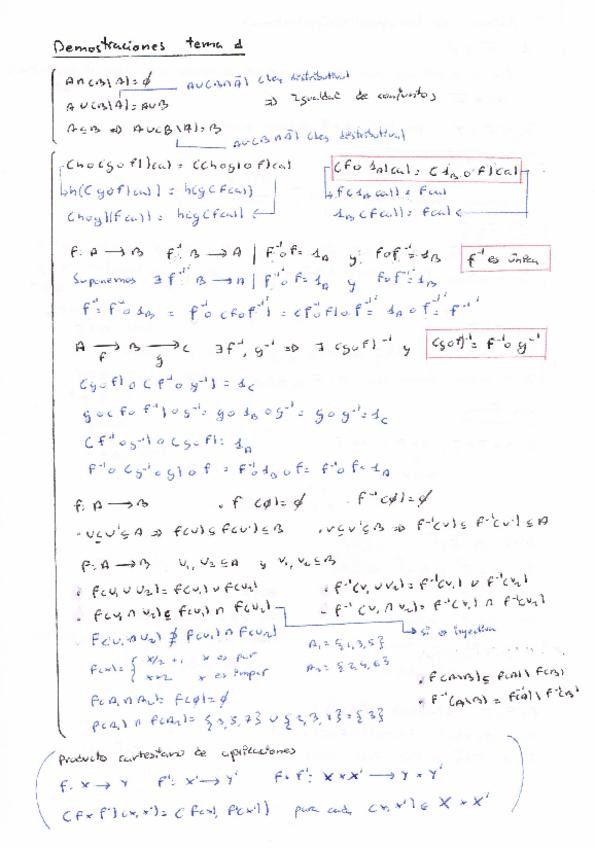 Demostraciones tema 1
A∩(B\A)=∅
A∪(B∩Ā) (ley distributiva)
A∪(B\A)=A∪B
⇒ Igualdad de conjuntos
A⊆B ⇒ A∪(B\A)=B
A∪(B∩Ā) (ley distributiva)
(h∘(g∘f))(a)=((h∘g)∘f)(a)
(f∘1_A)(a)=(1_B∘f)(a)
h((g∘f)(a))=h(g(f(a)))
(h∘g)(f(a))=h(g(f(a)))
1_B(f(a))=f(a)
f: A→B f⁻¹: B→A | f⁻¹∘f=1_A y f∘f⁻¹=1_B
f⁻¹ es única
Suponemos ∃ f⁻¹': B→A | f⁻¹'∘f=1_A y f∘f⁻¹'=1_B
f⁻¹=f⁻¹∘1_B=f⁻¹∘(f∘f⁻¹')=(f⁻¹∘f)∘f⁻¹'=1_A∘f⁻¹'=f⁻¹'
A→B→C ∃f⁻¹, g⁻¹ ⇒ ∃(g∘f)⁻¹ y (g∘f)⁻¹=f⁻¹∘g⁻¹
f g
(g∘f)∘(f⁻¹∘g⁻¹)=1_C
g∘(f∘f⁻¹)∘g⁻¹=g∘1_B∘g⁻¹=g∘g⁻¹=1_C
(f⁻¹∘g⁻¹)∘(g∘f)=1_A
f⁻¹∘(g⁻¹∘g)∘f=f⁻¹∘1_B∘f=f⁻¹∘f=1_A
f: A→B · f(∅)=∅ · f⁻¹(∅)=∅
· U⊆U'⊆A ⇒ f(U)⊆f(U')⊆B · V⊆V'⊆B ⇒ f⁻¹(V)⊆f⁻¹(V')⊆A
f: A→B U₁,U₂⊆A y V₁,V₂⊆B
· f(U₁∪U₂)=f(U₁)∪f(U₂) · f⁻¹(V₁∪V₂)=f⁻¹(V₁)∪f⁻¹(V₂)
· f(U₁∩U₂)⊆f(U₁)∩f(U₂) · f⁻¹(V₁∩V₂)=f⁻¹(V₁)∩f⁻¹(V₂)
f(U₁∩U₂)⊉f(U₁)∩f(U₂)
si es inyectiva
f(x)={ x/2+1, x es par
A₁={1,3,5}
x+2 x es impar
A₂={2,4,6}
f(A₁∩A₂)=f(∅)=∅
f(A₁)∩f(A₂)={3,5,7}∪{2,3,4}={3}
Producto cartesiano de aplicaciones
f: X→Y f': X'→Y' f×f': X×X'→Y×Y'
(f×f')(x,x')=(f(x), f'(x')) para cada (x,x')∈X×X'